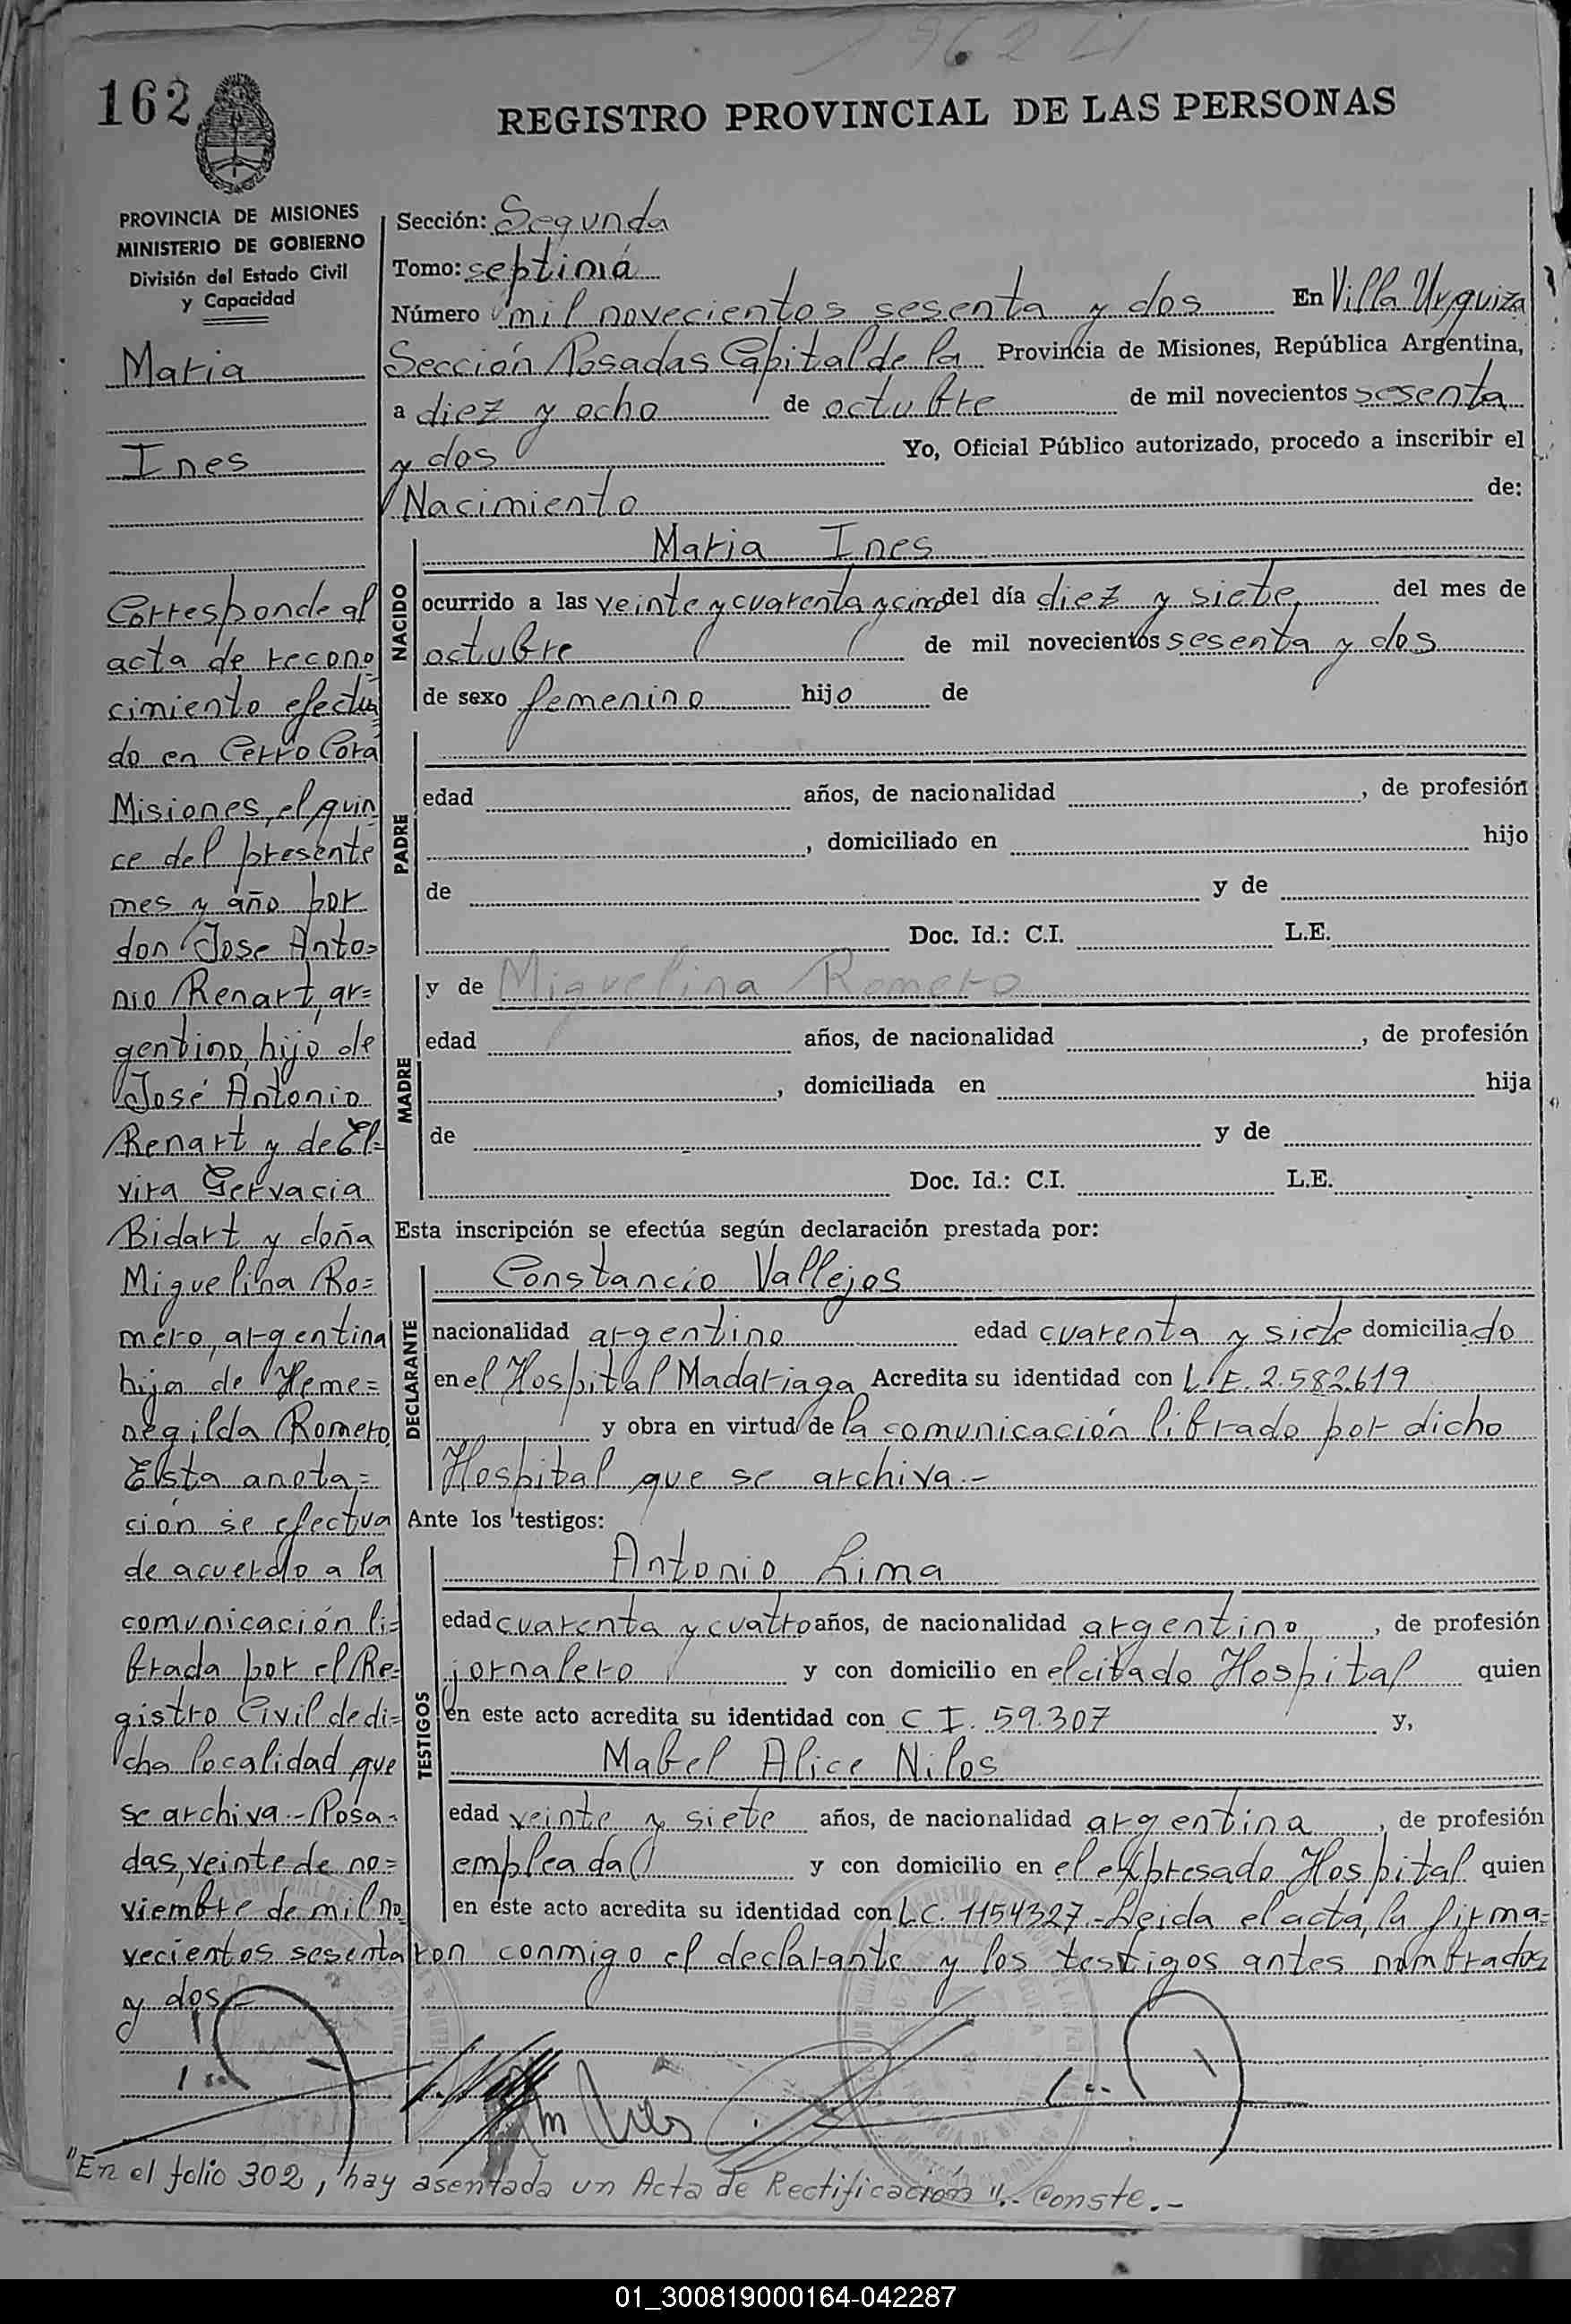 1962
162
REGISTRO PROVINCIAL DE LAS PERSONAS
PROVINCIA DE MISIONES
MINISTERIO DE GOBIERNO
División del Estado Civil
y Capacidad
Maria
Ines
Corresponde al
acta de recono
cimiento efectua
do en Cerro Corá
Misiones, el quin
ce del presente
mes y año por
don Jose Anto=
nio Renart, ar=
gentino, hijo de
José Antonio
Renart y de El=
vira Gervacia
Bidart y doña
Miguelina Ro=
mero, argentina
hija de Heme=
negilda Romero
Esta anota=
ción se efectua
de acuerdo a la
comunicación li=
brada por el Re=
gistro Civil de di=
cha localidad que
se archiva.- Posa-
das, veinte de no=
viembre de mil no
vecientos sesenta
y dos.-
Sección: Segunda
Tomo: septima
Número mil novecientos sesenta y dos En Villa Urquiza
Sección Posadas Capital de la Provincia de Misiones, República Argentina,
a diez y ocho de octubre de mil novecientos sesenta
y dos Yo, Oficial Público autorizado, procedo a inscribir el
Nacimiento de:
NACIDO
Maria Ines
ocurrido a las veinte y cuarenta y cinco del día diez y siete del mes de
octubre de mil novecientos sesenta y dos
de sexo femenino hijo de
PADRE
edad años, de nacionalidad , de profesión
, domiciliado en hijo
de y de
Doc. Id.: C.I. L.E.
MADRE
y de Miguelina Romero
edad años, de nacionalidad , de profesión
, domiciliada en hija
de y de
Doc. Id.: C.I. L.E.
Esta inscripción se efectúa según declaración prestada por:
DECLARANTE
Constancio Vallejos
nacionalidad argentino edad cuarenta y siete domiciliado
en el Hospital Madariaga Acredita su identidad con L.E. 2.582.619
y obra en virtud de la comunicación librado por dicho
Hospital que se archiva.-
Ante los testigos:
TESTIGOS
Antonio Lima
edad cuarenta y cuatro años, de nacionalidad argentino, de profesión
jornalero y con domicilio en el citado Hospital quien
en este acto acredita su identidad con C.I. 59.307 y,
Mabel Alice Nilos
edad veinte y siete años, de nacionalidad argentina, de profesión
empleada y con domicilio en el expresado Hospital quien
en este acto acredita su identidad con L.C. 1154327.- Leida el acta, la firma=
ron conmigo el declarante y los testigos antes nombrados
"En el folio 302, hay asentada un Acta de Rectificación".- Conste.-
01_300819000164-042287